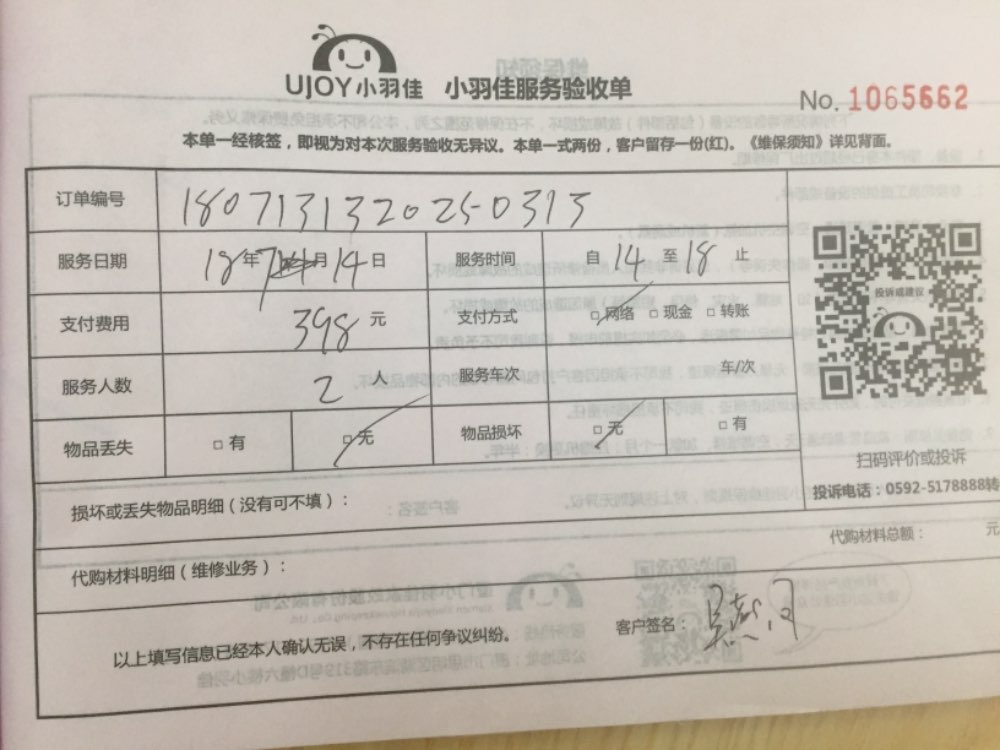 UJOY小羽佳 小羽佳服务验收单
No. 1065662
本单一经核签，即视为对本次服务验收无异议。本单一式两份，客户留存一份(红)。《维保须知》详见背面。
订单编号 1807131320250313
服务日期 18年7月14日 服务时间 自14至18止
支付费用 398元 支付方式 □网络 □现金 □转账
投诉或建议
服务人数 2人 服务车次 车/次
物品丢失 □有 □无 物品损坏 □无 □有
扫码评价或投诉
投诉电话：0592-5178888转
损坏或丢失物品明细（没有可不填）：
代购材料总额： 元
代购材料明细（维修业务）：
以上填写信息已经本人确认无误，不存在任何争议纠纷。 客户签名：